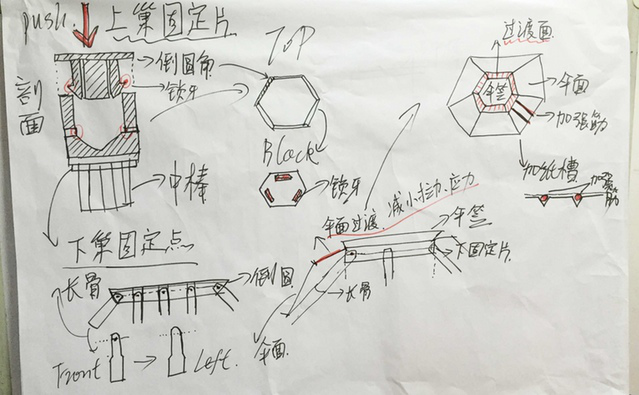 push.
上巢固定片
剖面
倒圆角
锁牙
中棒
TOP
Block
锁牙
过渡面
伞面
加张筋
加纸槽
加张筋
下巢固定点
长骨
倒圆
Front
Left.
伞面过渡.减小拉力、应力
下固定片
长骨
伞面.